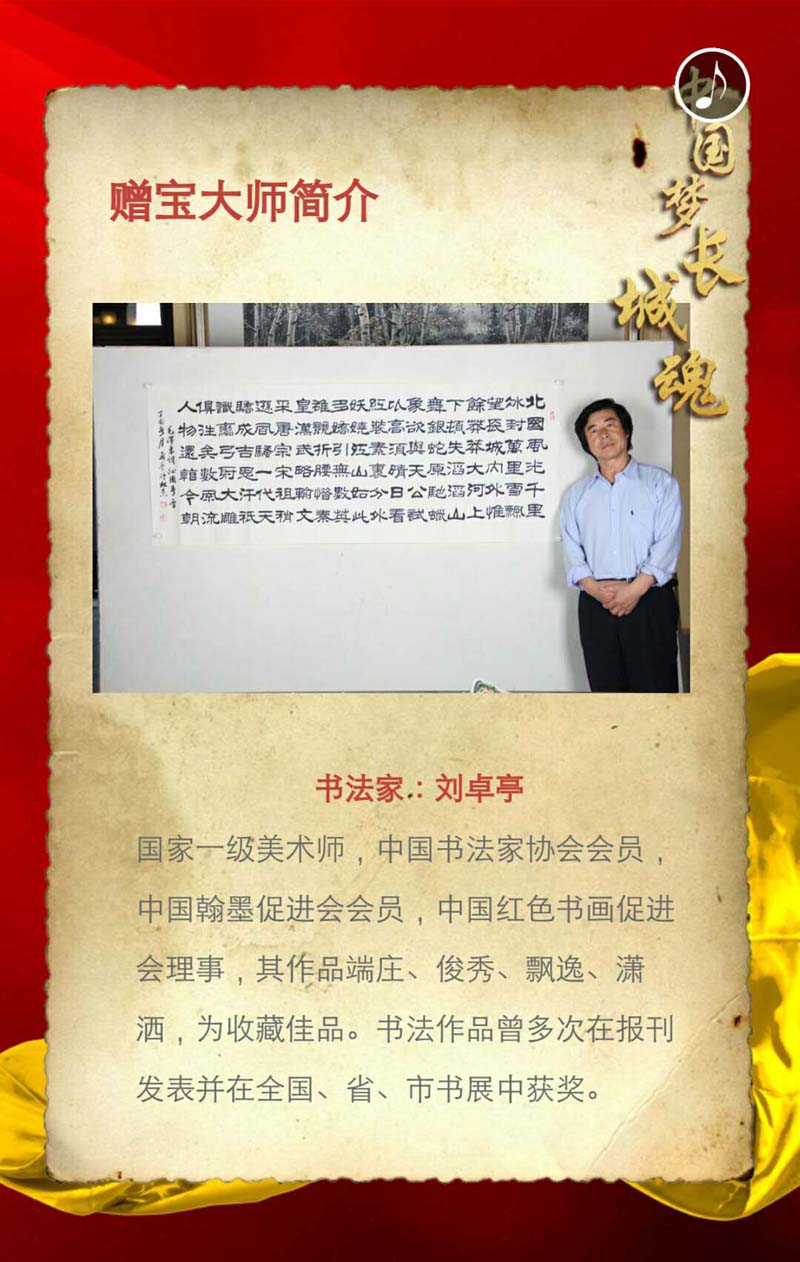 中国梦长城魂
赠宝大师简介
北國風光千里
冰封萬里雪飄
望長城內外惟
餘莽莽大河上
下頓失滔滔山
舞銀蛇原馳蠟
象欲與天公試
比高須晴日看
紅裝素裹分外
妖嬈江山如此
多嬌引無數英
雄競折腰惜秦
皇漢武略輸文
采唐宗宋祖稍
遜風騷一代天
驕成吉思汗祇
識彎弓射大雕
俱往矣數風流
人物還看今朝
毛澤東詞沁園春雪
书法家：刘卓亭
国家一级美术师，中国书法家协会会员，
中国翰墨促进会会员，中国红色书画促进
会理事，其作品端庄、俊秀、飘逸、潇
洒，为收藏佳品。书法作品曾多次在报刊
发表并在全国、省、市书展中获奖。